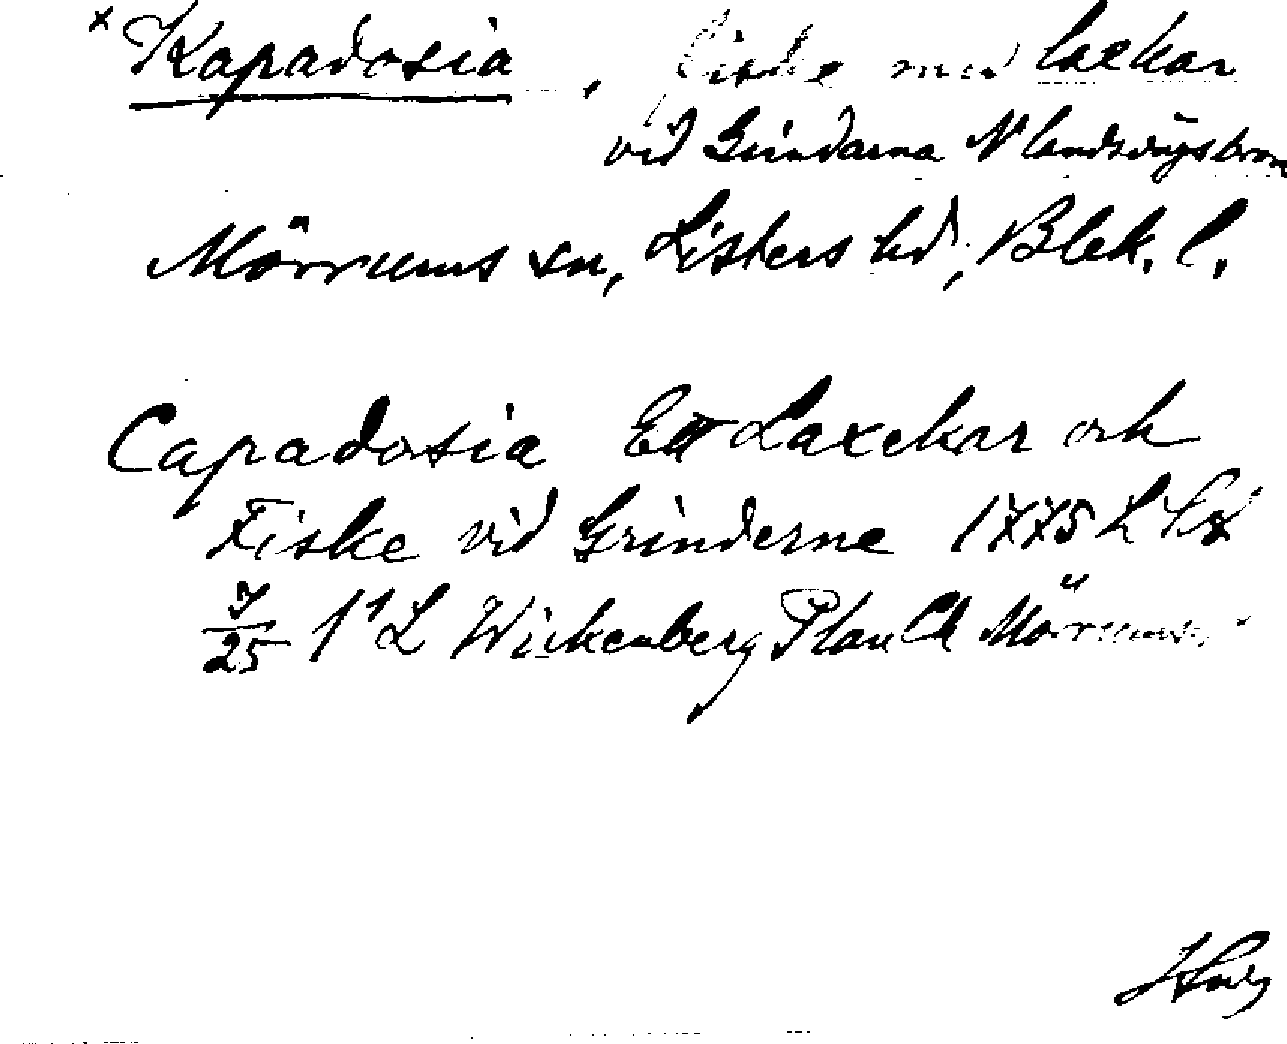 x Kapadosia, fiske med laxkar
vid Grindarna N landsvägsbron
Mörrums sn, Listers hd, Blek. l.
Capadosia Ett Laxekar och
Fiske vid Grinderne 1775 L
7/25 1 L Wickenberg Plan Mörrums